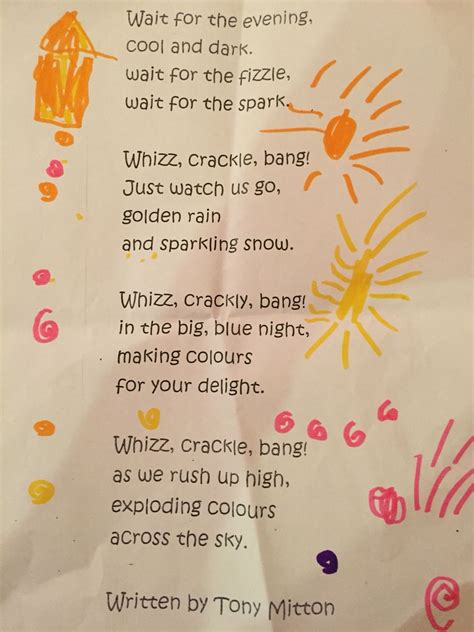 Wait for the evening,
cool and dark.
wait for the fizzle,
wait for the spark.
Whizz, crackle, bang!
Just watch us go,
golden rain
and sparkling snow.
Whizz, crackly, bang!
in the big, blue night,
making colours
for your delight.
Whizz, crackle, bang!
as we rush up high,
exploding colours
across the sky.
Written by Tony Mitton